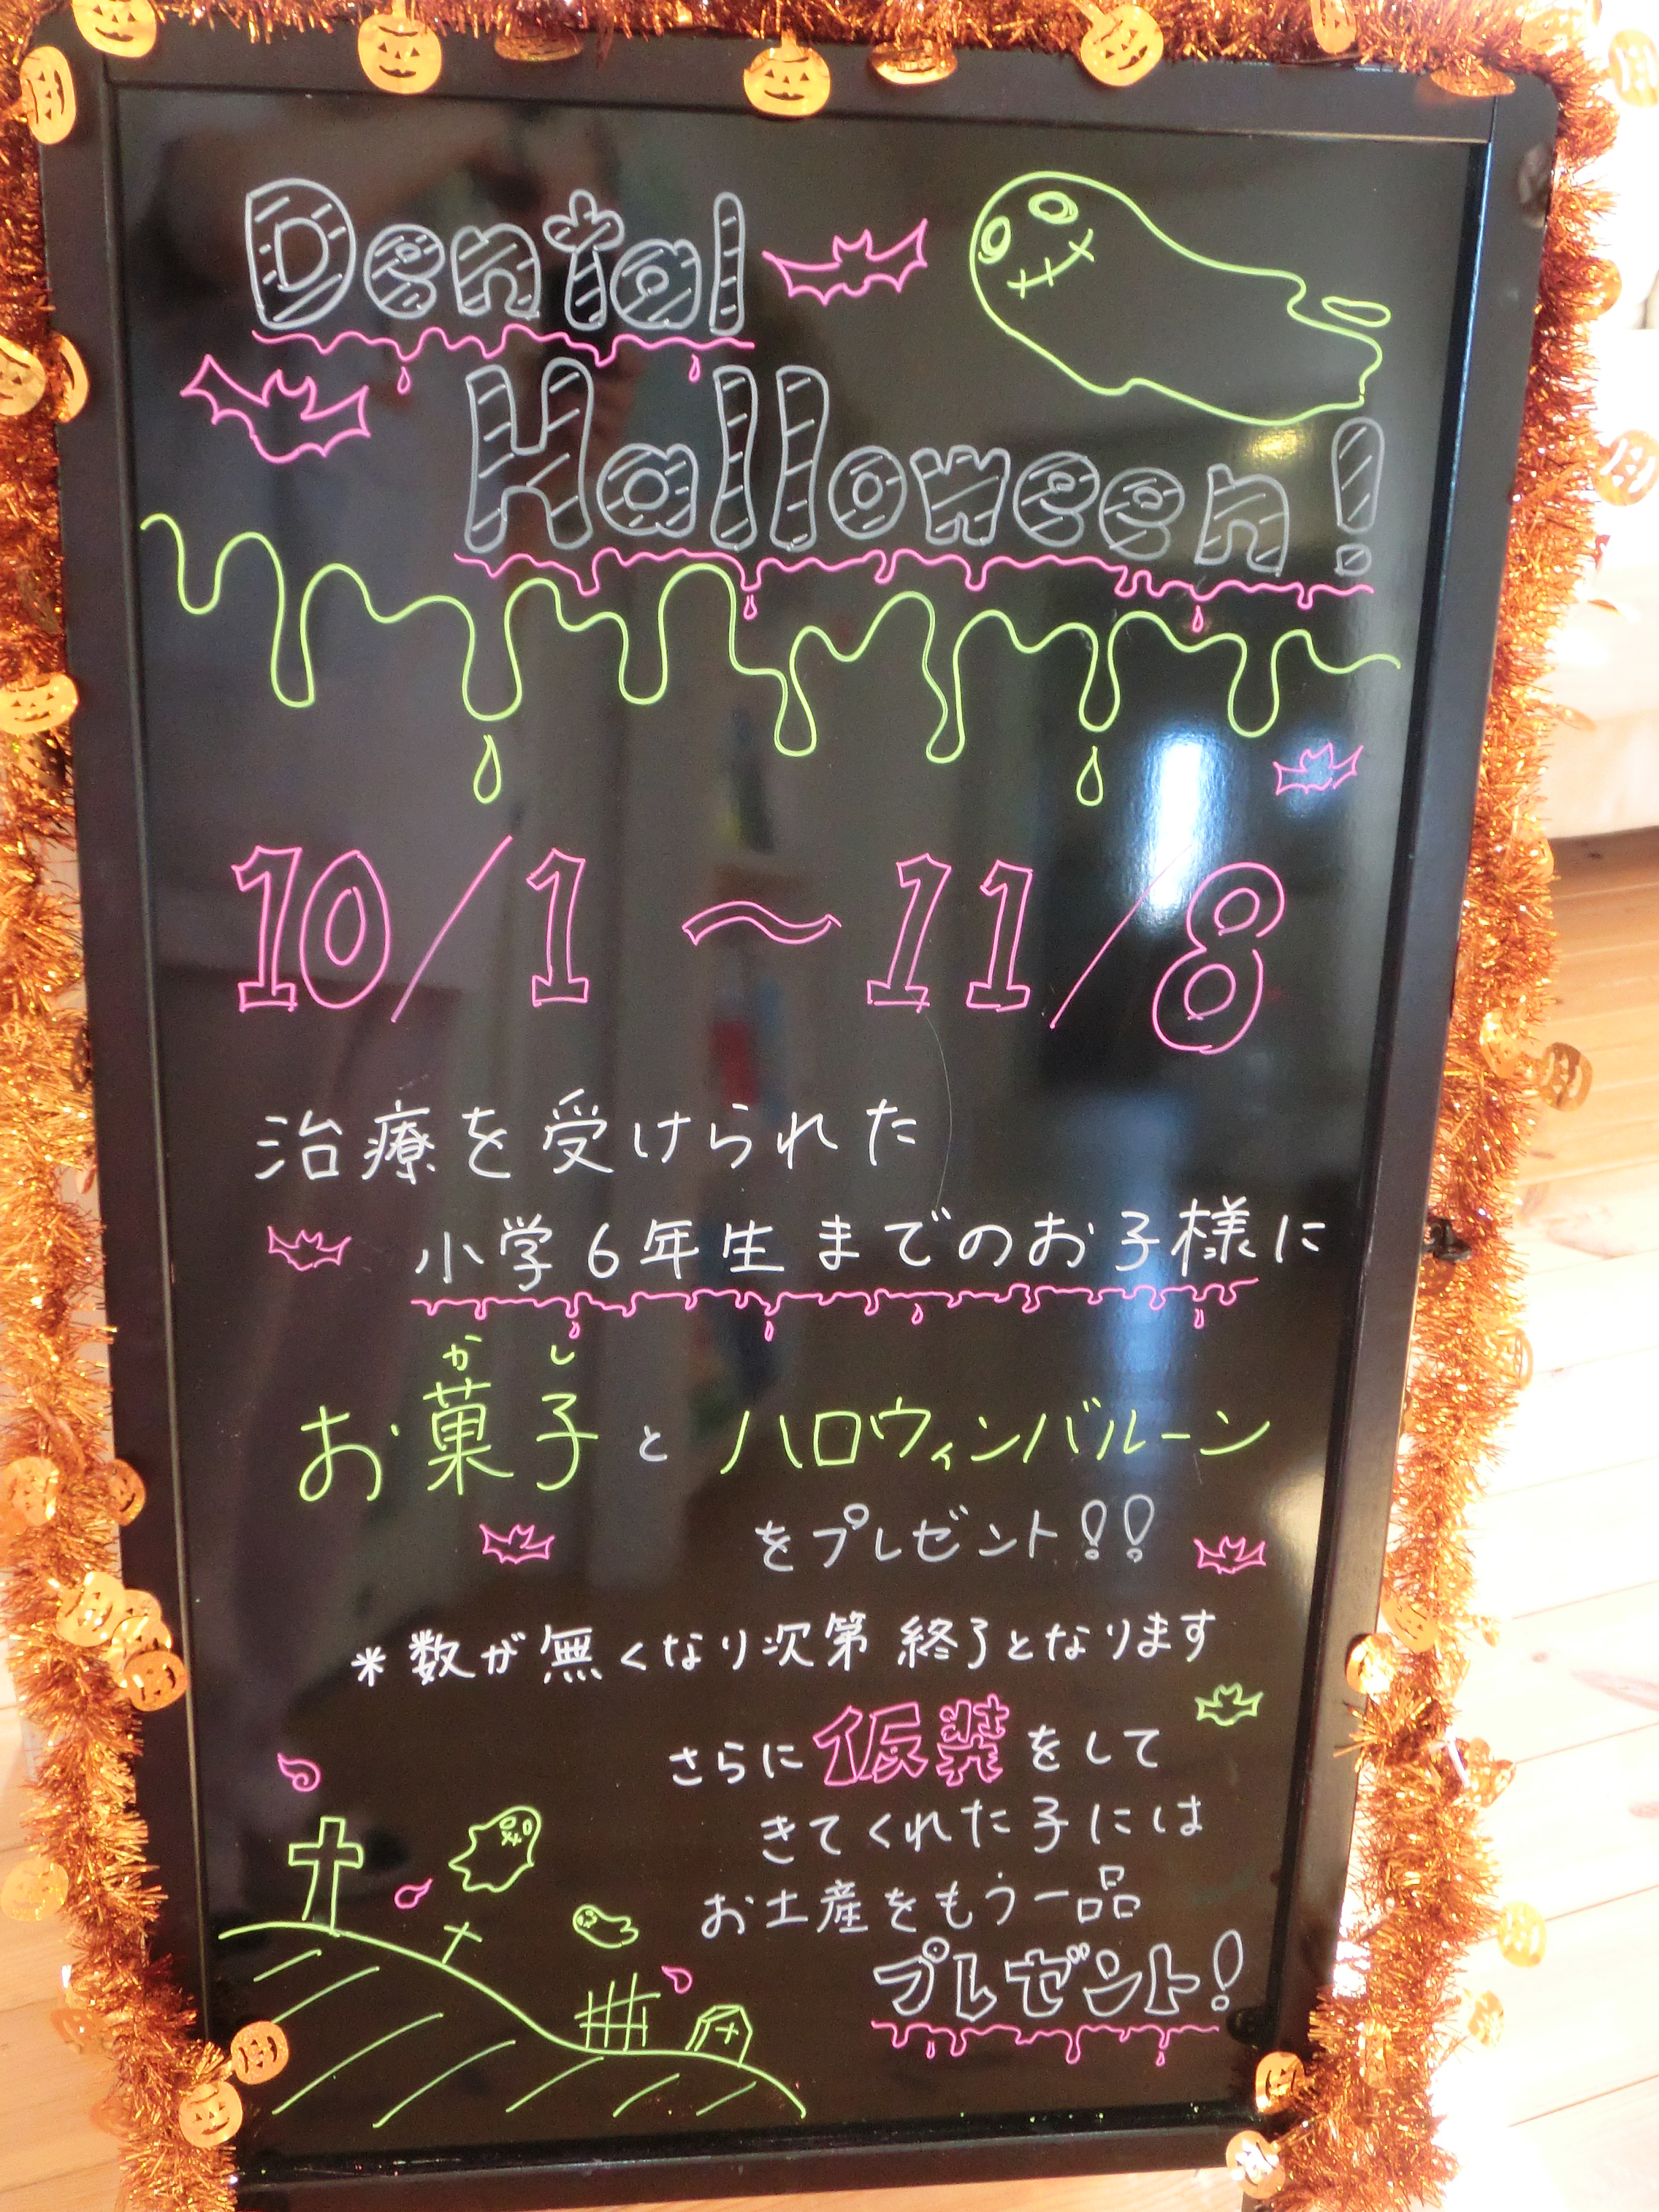 Dental
Halloween!
10/1 ～ 11/8
治療を受けられた
小学6年生までのお子様に
かし
お菓子とハロウィンバルーン
をプレゼント!!
*数が無くなり次第終了となります
さらに仮装をして
きてくれた子には
お土産をもう一品
プレゼント!